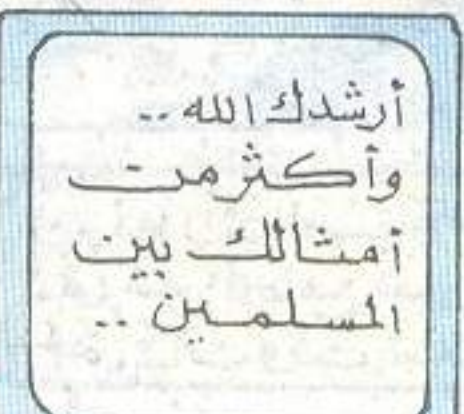 أرشدك الله ..
وأكثر من
أمثالك بين
المسلمين ..